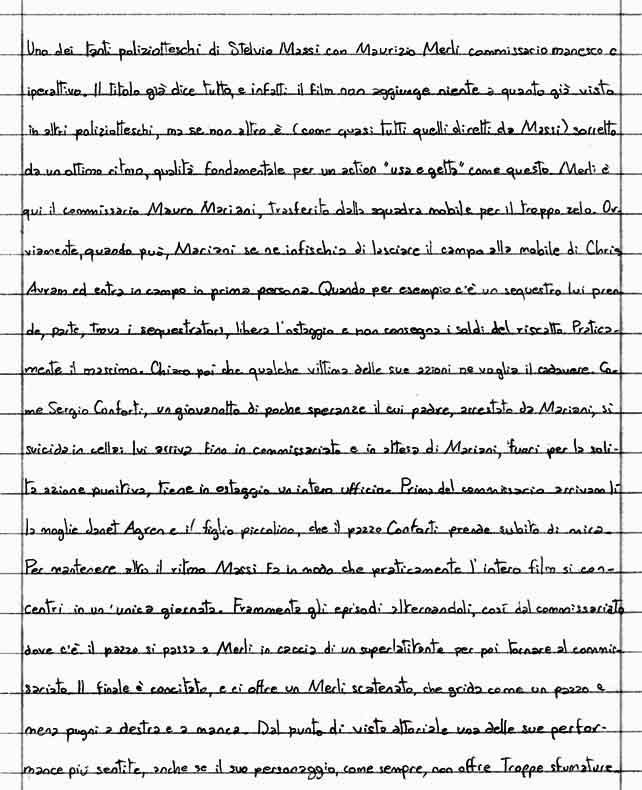 Uno dei tanti poliziotteschi di Stelvio Massi con Maurizio Merli commissario manesco e
iperattivo. Il titolo già dice tutto, e infatti il film non aggiunge niente a quanto già visto
in altri poliziotteschi, ma se non altro è (come quasi tutti quelli diretti da Massi) sorretto
da un ottimo ritmo, qualità fondamentale per un action "usa e getta" come questo. Merli è
qui il commissario Mauro Mariani, trasferito dalla squadra mobile per il troppo zelo. Ov-
viamente, quando può, Mariani se ne infischia di lasciare il campo alla mobile di Chris
Avram ed entra in campo in prima persona. Quando per esempio c'è un sequestro lui pren-
de, parte, trova i sequestratori, libera l'ostaggio e non consegna i soldi del riscatto. Pratica-
mente il massimo. Chiaro poi che qualche vittima delle sue azioni ne voglia il cadavere. Co-
me Sergio Conforti, un giovanotto di poche speranze il cui padre, arrestato da Mariani, si
suicida in cella: lui arriva fino in commissariato e in attesa di Mariani, fuori per la soli-
ta azione punitiva, tiene in ostaggio un intero ufficio. Prima del commissario arrivam lì
la moglie Janet Agren e il figlio piccolino, che il pazzo Conforti prende subito di mira.
Per mantenere alto il ritmo Massi fa in modo che praticamente l'intero film si con-
centri in un'unica giornata. Frammenta gli episodi alternandoli, così dal commissariato
dove c'è il pazzo si passa a Merli in caccia di un superlatitante per poi tornare al commis-
sariato. Il finale è concitato, e ci offre un Merli scatenato, che grida come un pazzo e
mena pugni a destra e a manca. Dal punto di vista attoriale una delle sue perfor-
mance più sentite, anche se il suo personaggio, come sempre, non offre troppe sfumature.